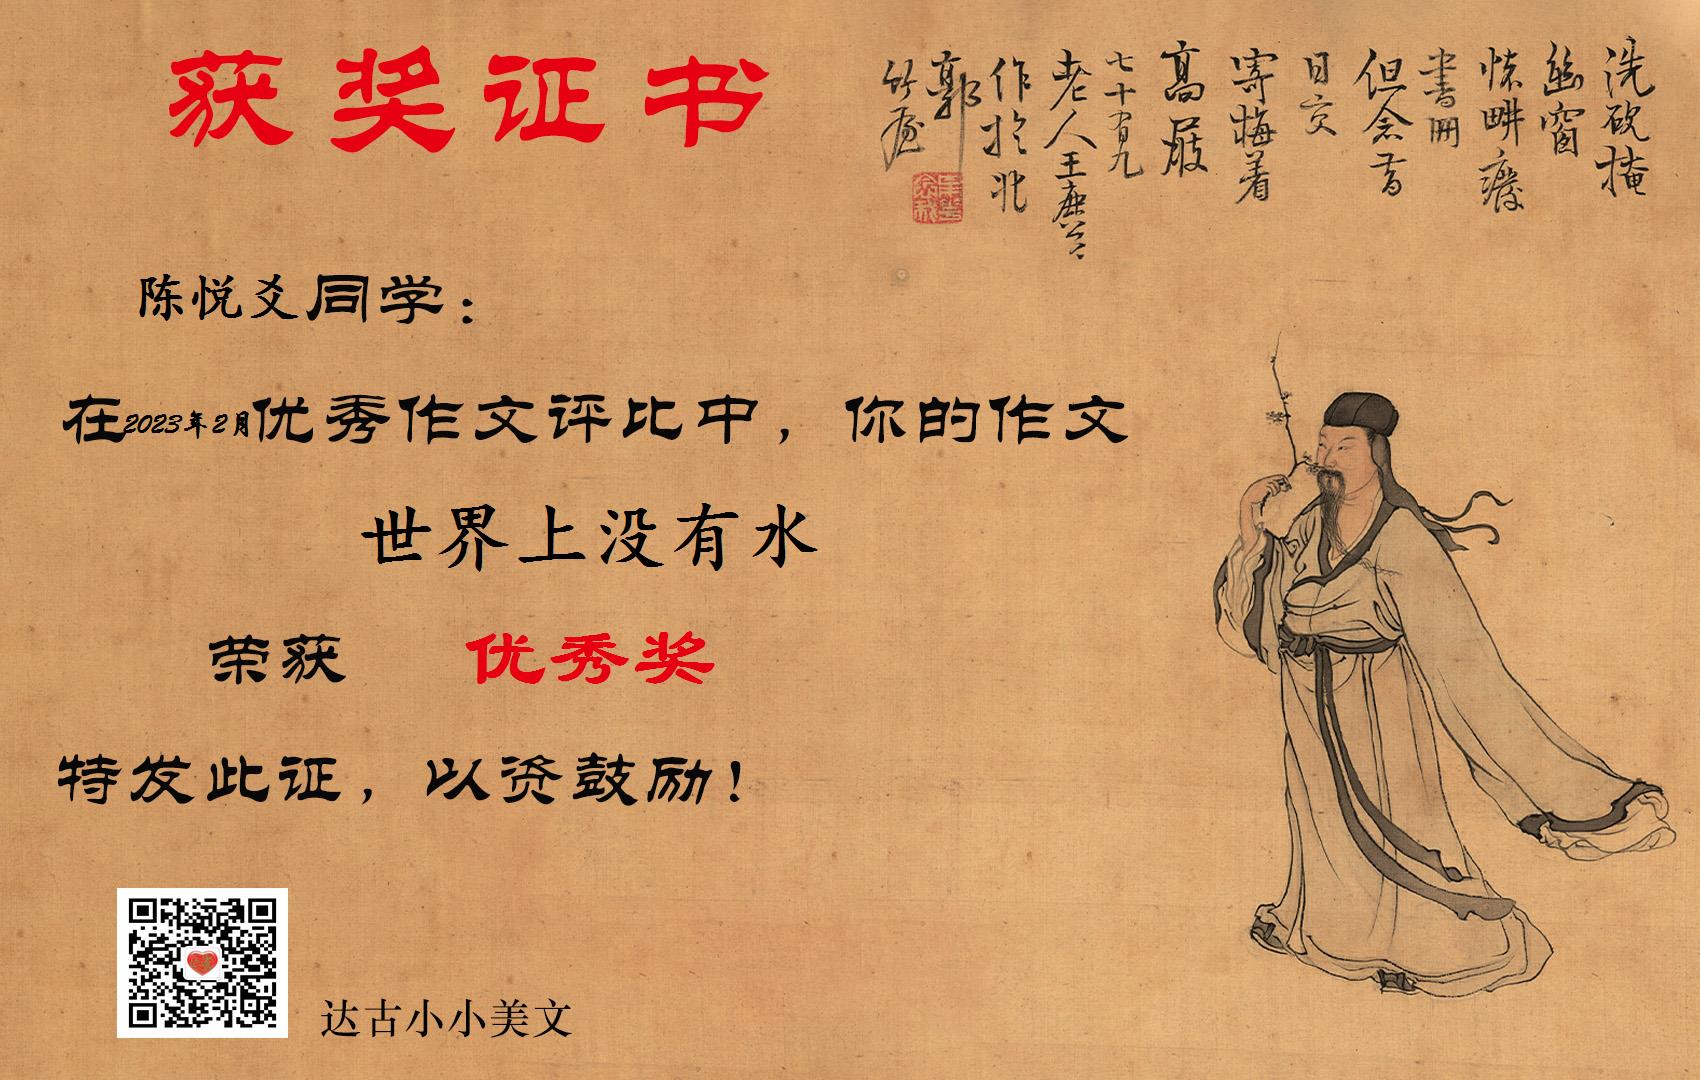 获奖证书
陈悦爻同学：
在2023年2月优秀作文评比中，你的作文
世界上没有水
荣获 优秀奖
特发此证，以资鼓励！
达古小小美文
洗砚掩
幽窗
书册
但念昔
日交
寄梅着
高屐
七十有九
老人王
作于北
郭
竹屋